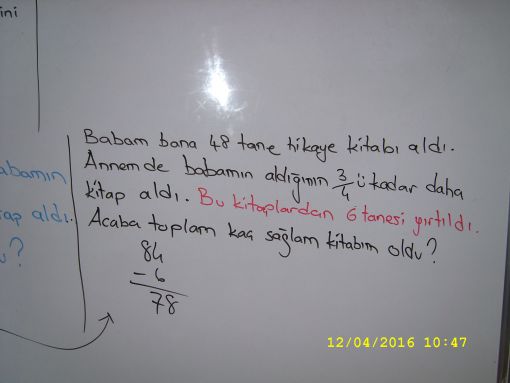 ini
Babam bana 48 tane hikaye kitabı aldı.
Annem de babamın aldığının 3/4 ü kadar daha
kitap aldı. Bu kitaplardan 6 tanesi yırtıldı.
Acaba toplam kaç sağlam kitabım oldu?
84
- 6
78
abamın
tap aldı.
u?
12/04/2016 10:47